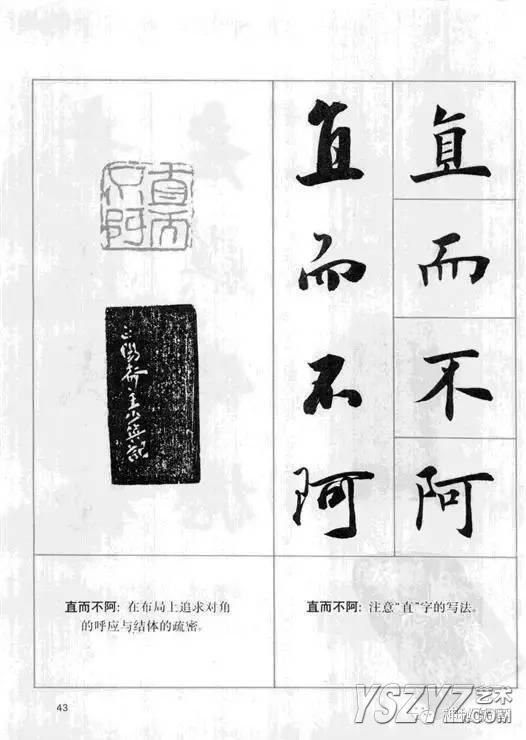 直而
不阿
直而不阿
直而不阿
直而不阿: 在布局上追求对角
的呼应与结体的疏密。
直而不阿: 注意“直”字的写法。
43
YSZYZ艺术
.COM